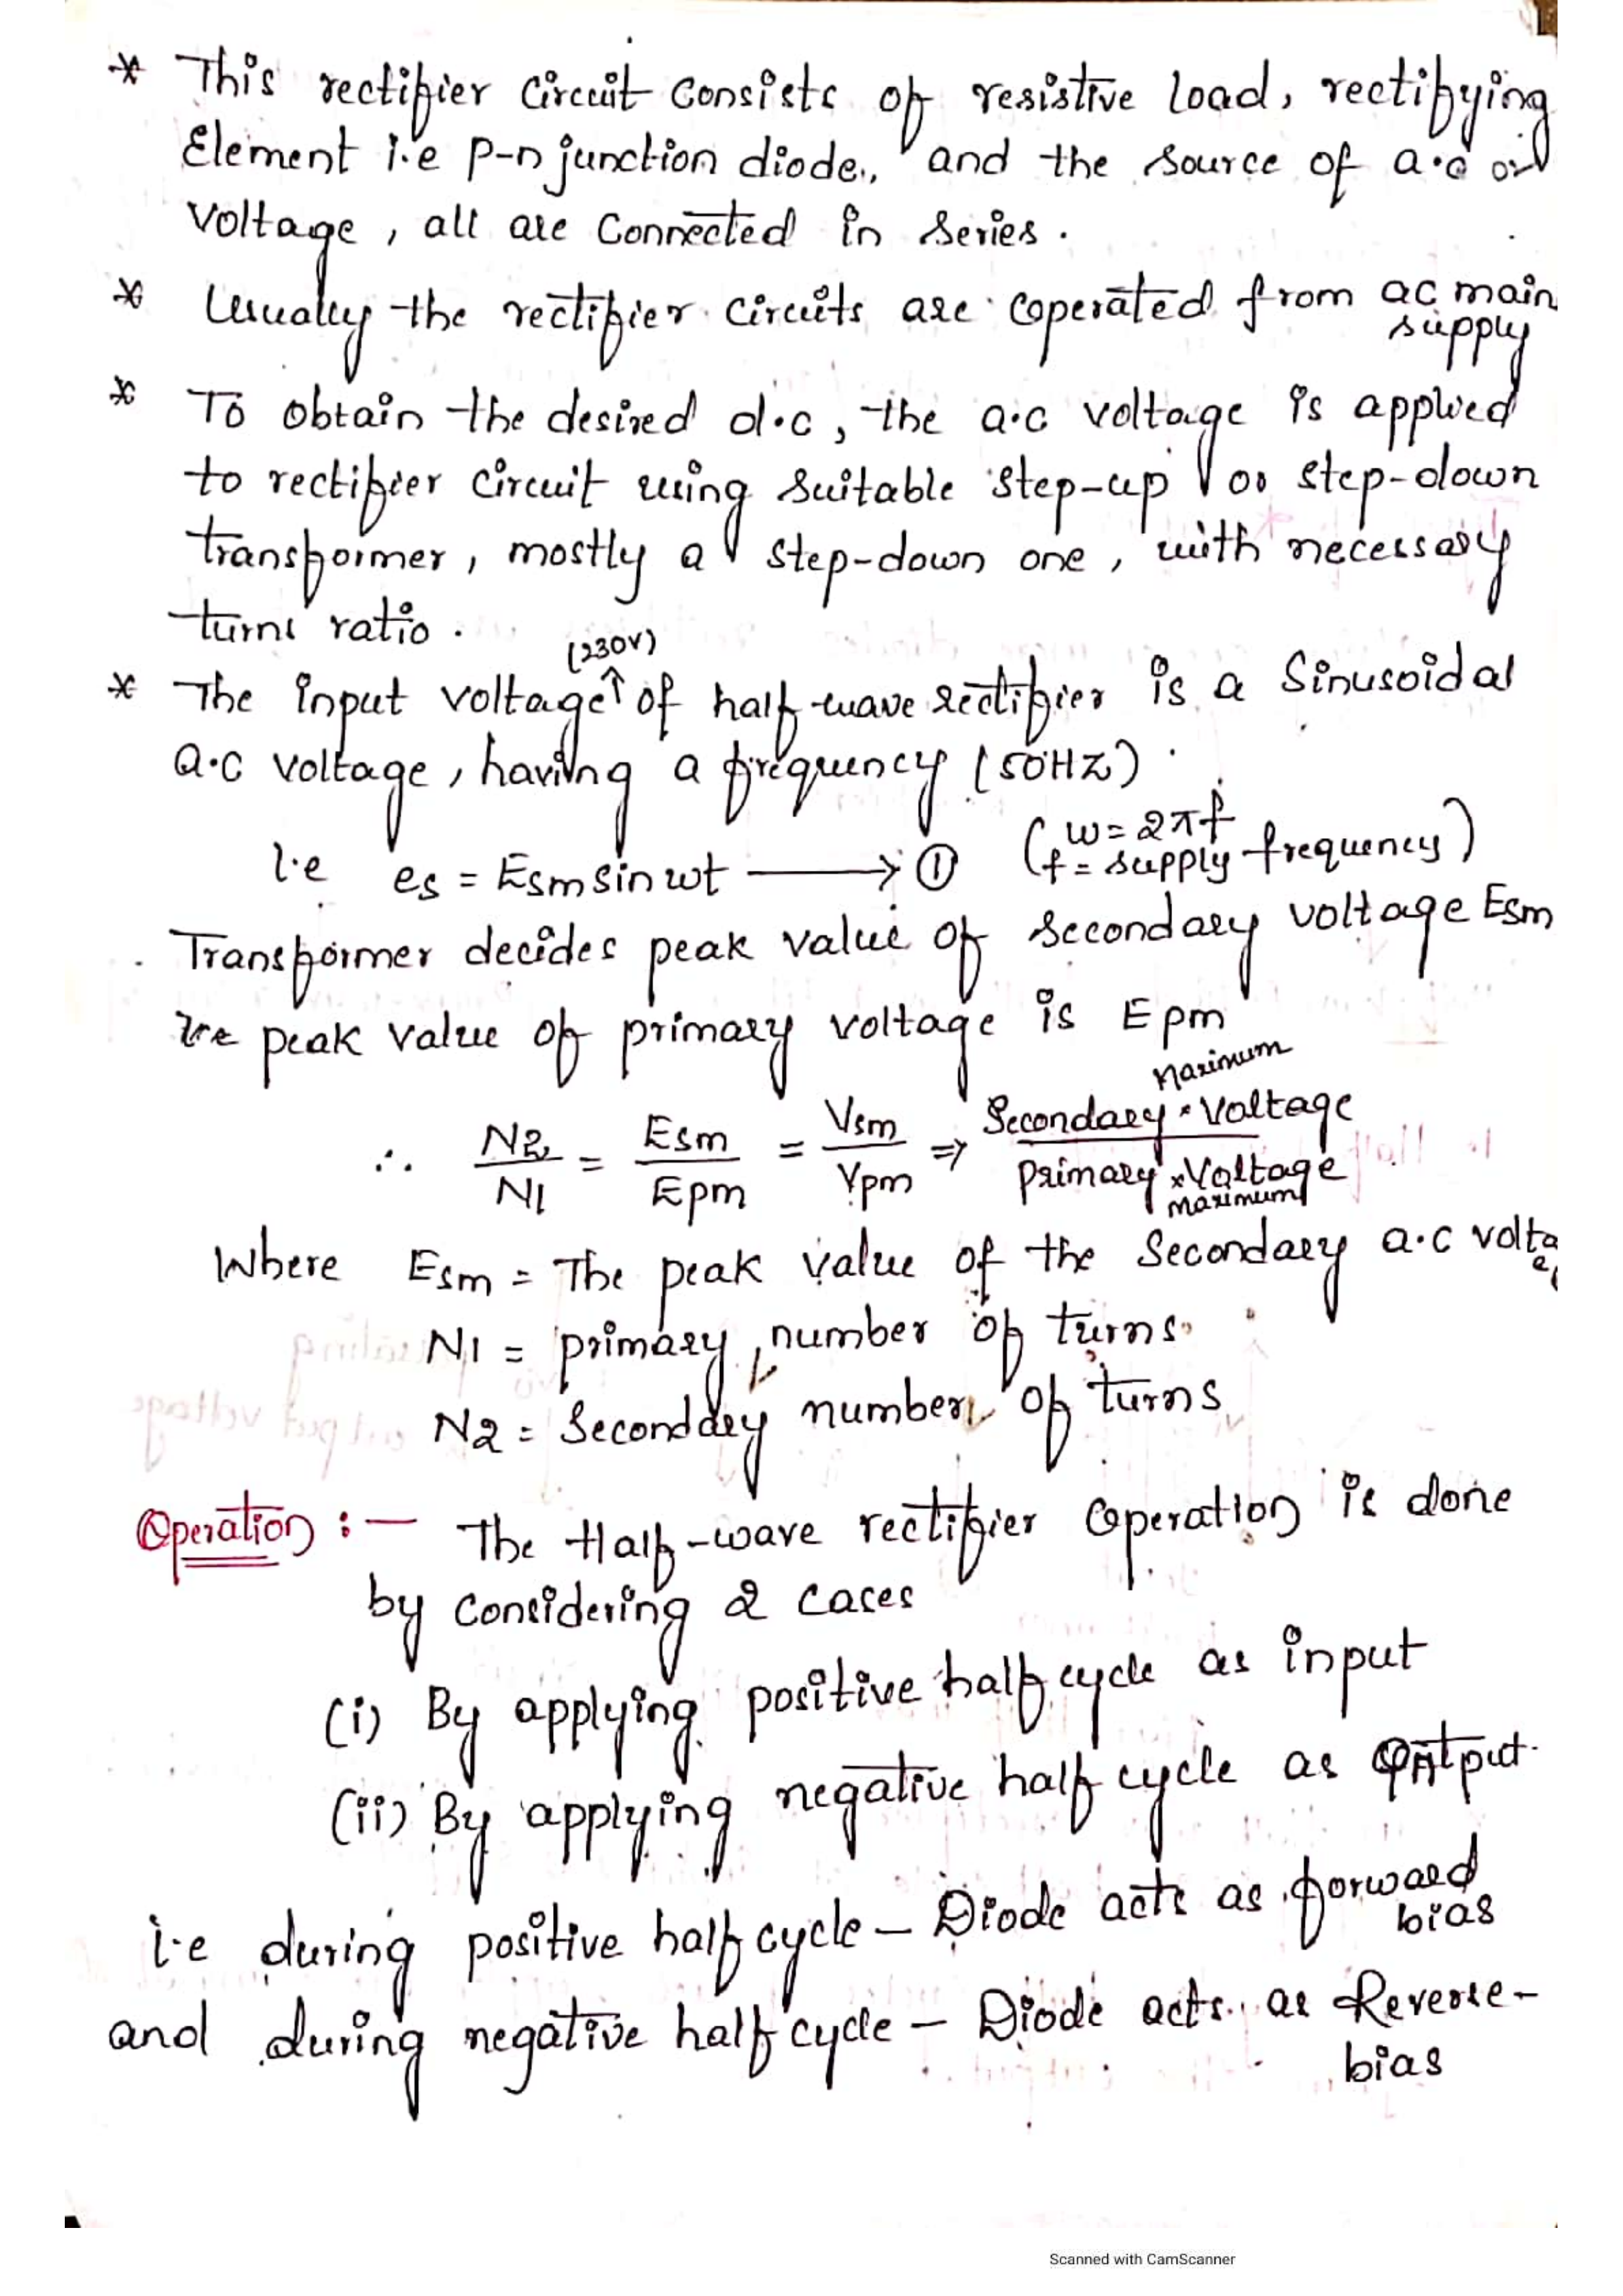 * This rectifier circuit consists of resistive load, rectifying
Element i.e p-n junction diode, and the source of a.c
voltage, all are connected in series.
* Usually the rectifier circuits are operated from ac main
supply
* To obtain the desired d.c, the a.c voltage is applied
to rectifier circuit using suitable step-up or step-down
transformer, mostly a step-down one, with necessary
turns ratio.
(230V)
* The input voltage↑ of half-wave rectifier is a Sinusoidal
a.c voltage, having a frequency (50HZ).
i.e es = Esm sin wt ⟶ ① (w = 2πf
f = supply frequency)
Transformer decides peak value of secondary voltage Esm
peak value of primary voltage is Epm
∴ N2/N1 = Esm/Epm = Vsm/Vpm ⇒ Secondary Maximum Voltage/Primary maximum Voltage
Where Esm = The peak value of the Secondary a.c volta
N1 = primary number of turns.
N2 = Seconddry number of turns
Operation :- The Half-wave rectifier operation is done
by considering 2 cases
(i) By applying positive half cycle as input
(ii) By applying negative half cycle as
i.e during positive half cycle - Diode acts as forward
bias
and during negative half cycle - Diode acts as Reverse-
bias
Scanned with CamScanner